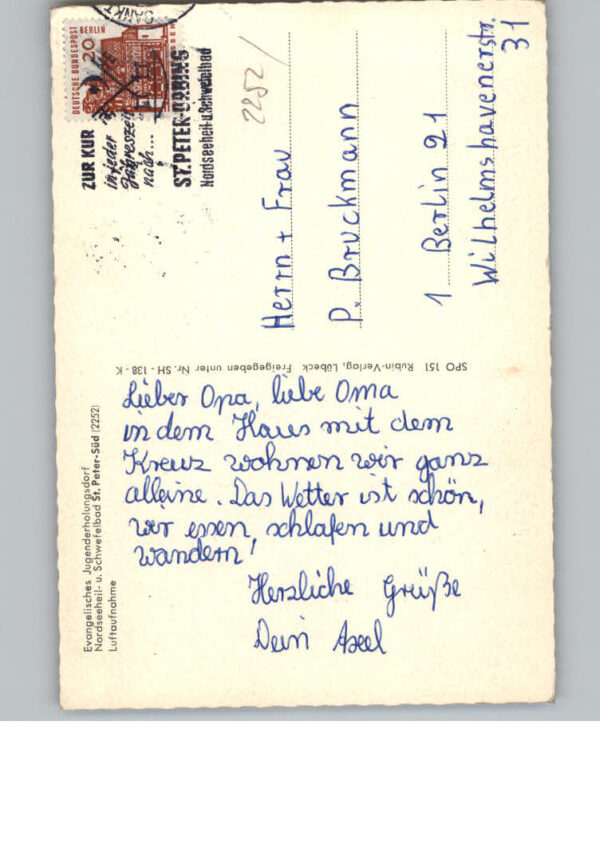 DEUTSCHE BUNDESPOST BERLIN
20
ZUR KUR
in jeder
Jahreszeit
nach...
ST. PETER-ORDING
Nordseeheil- u. Schwefelbad
2252/
Herrn + Frau
P. Bruckmann
1 Berlin 21
Wilhelmshavenerstr.
31
SPO 151 Rubin-Verlag, Lübeck Freigegeben unter Nr. SH - 138 - K
Evangelisches Jugenderholungsdorf
Nordseeheil- u. Schwefelbad St. Peter-Süd (2252)
Luftaufnahme
Lieber Opa, liebe Oma
in dem Haus mit dem
Kreuz wohnen wir ganz
alleine. Das Wetter ist schön,
wir essen, schlafen und
wandern!
Herzliche Grüße
Dein Axel